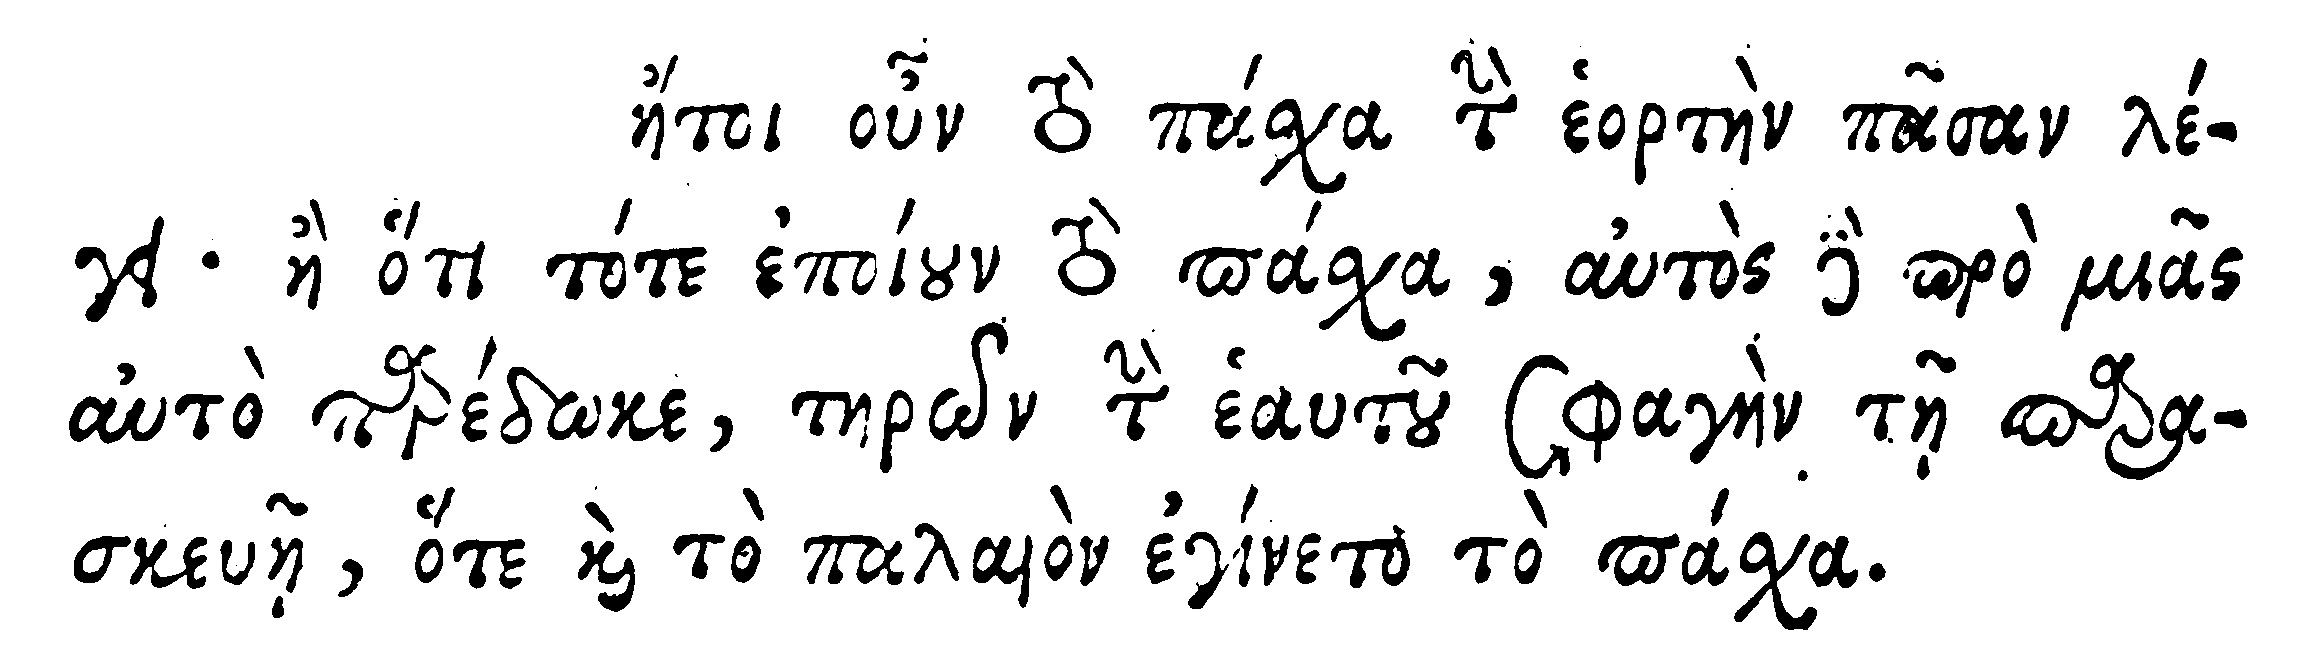 ἤτοι οὖν τὸ πάσχα τὴν ἑορτὴν πᾶσαν λέ-
γει · ἢ ὅτι τότε ἐποίουν τὸ πάσχα, αὐτὸς δὲ πρὸ μιᾶς
αὐτὸ παρέδωκε, τηρῶν τὴν ἑαυτοῦ σφαγὴν τῇ παρα-
σκευῇ, ὅτε καὶ τὸ παλαιὸν ἐγίνετο τὸ πάσχα.